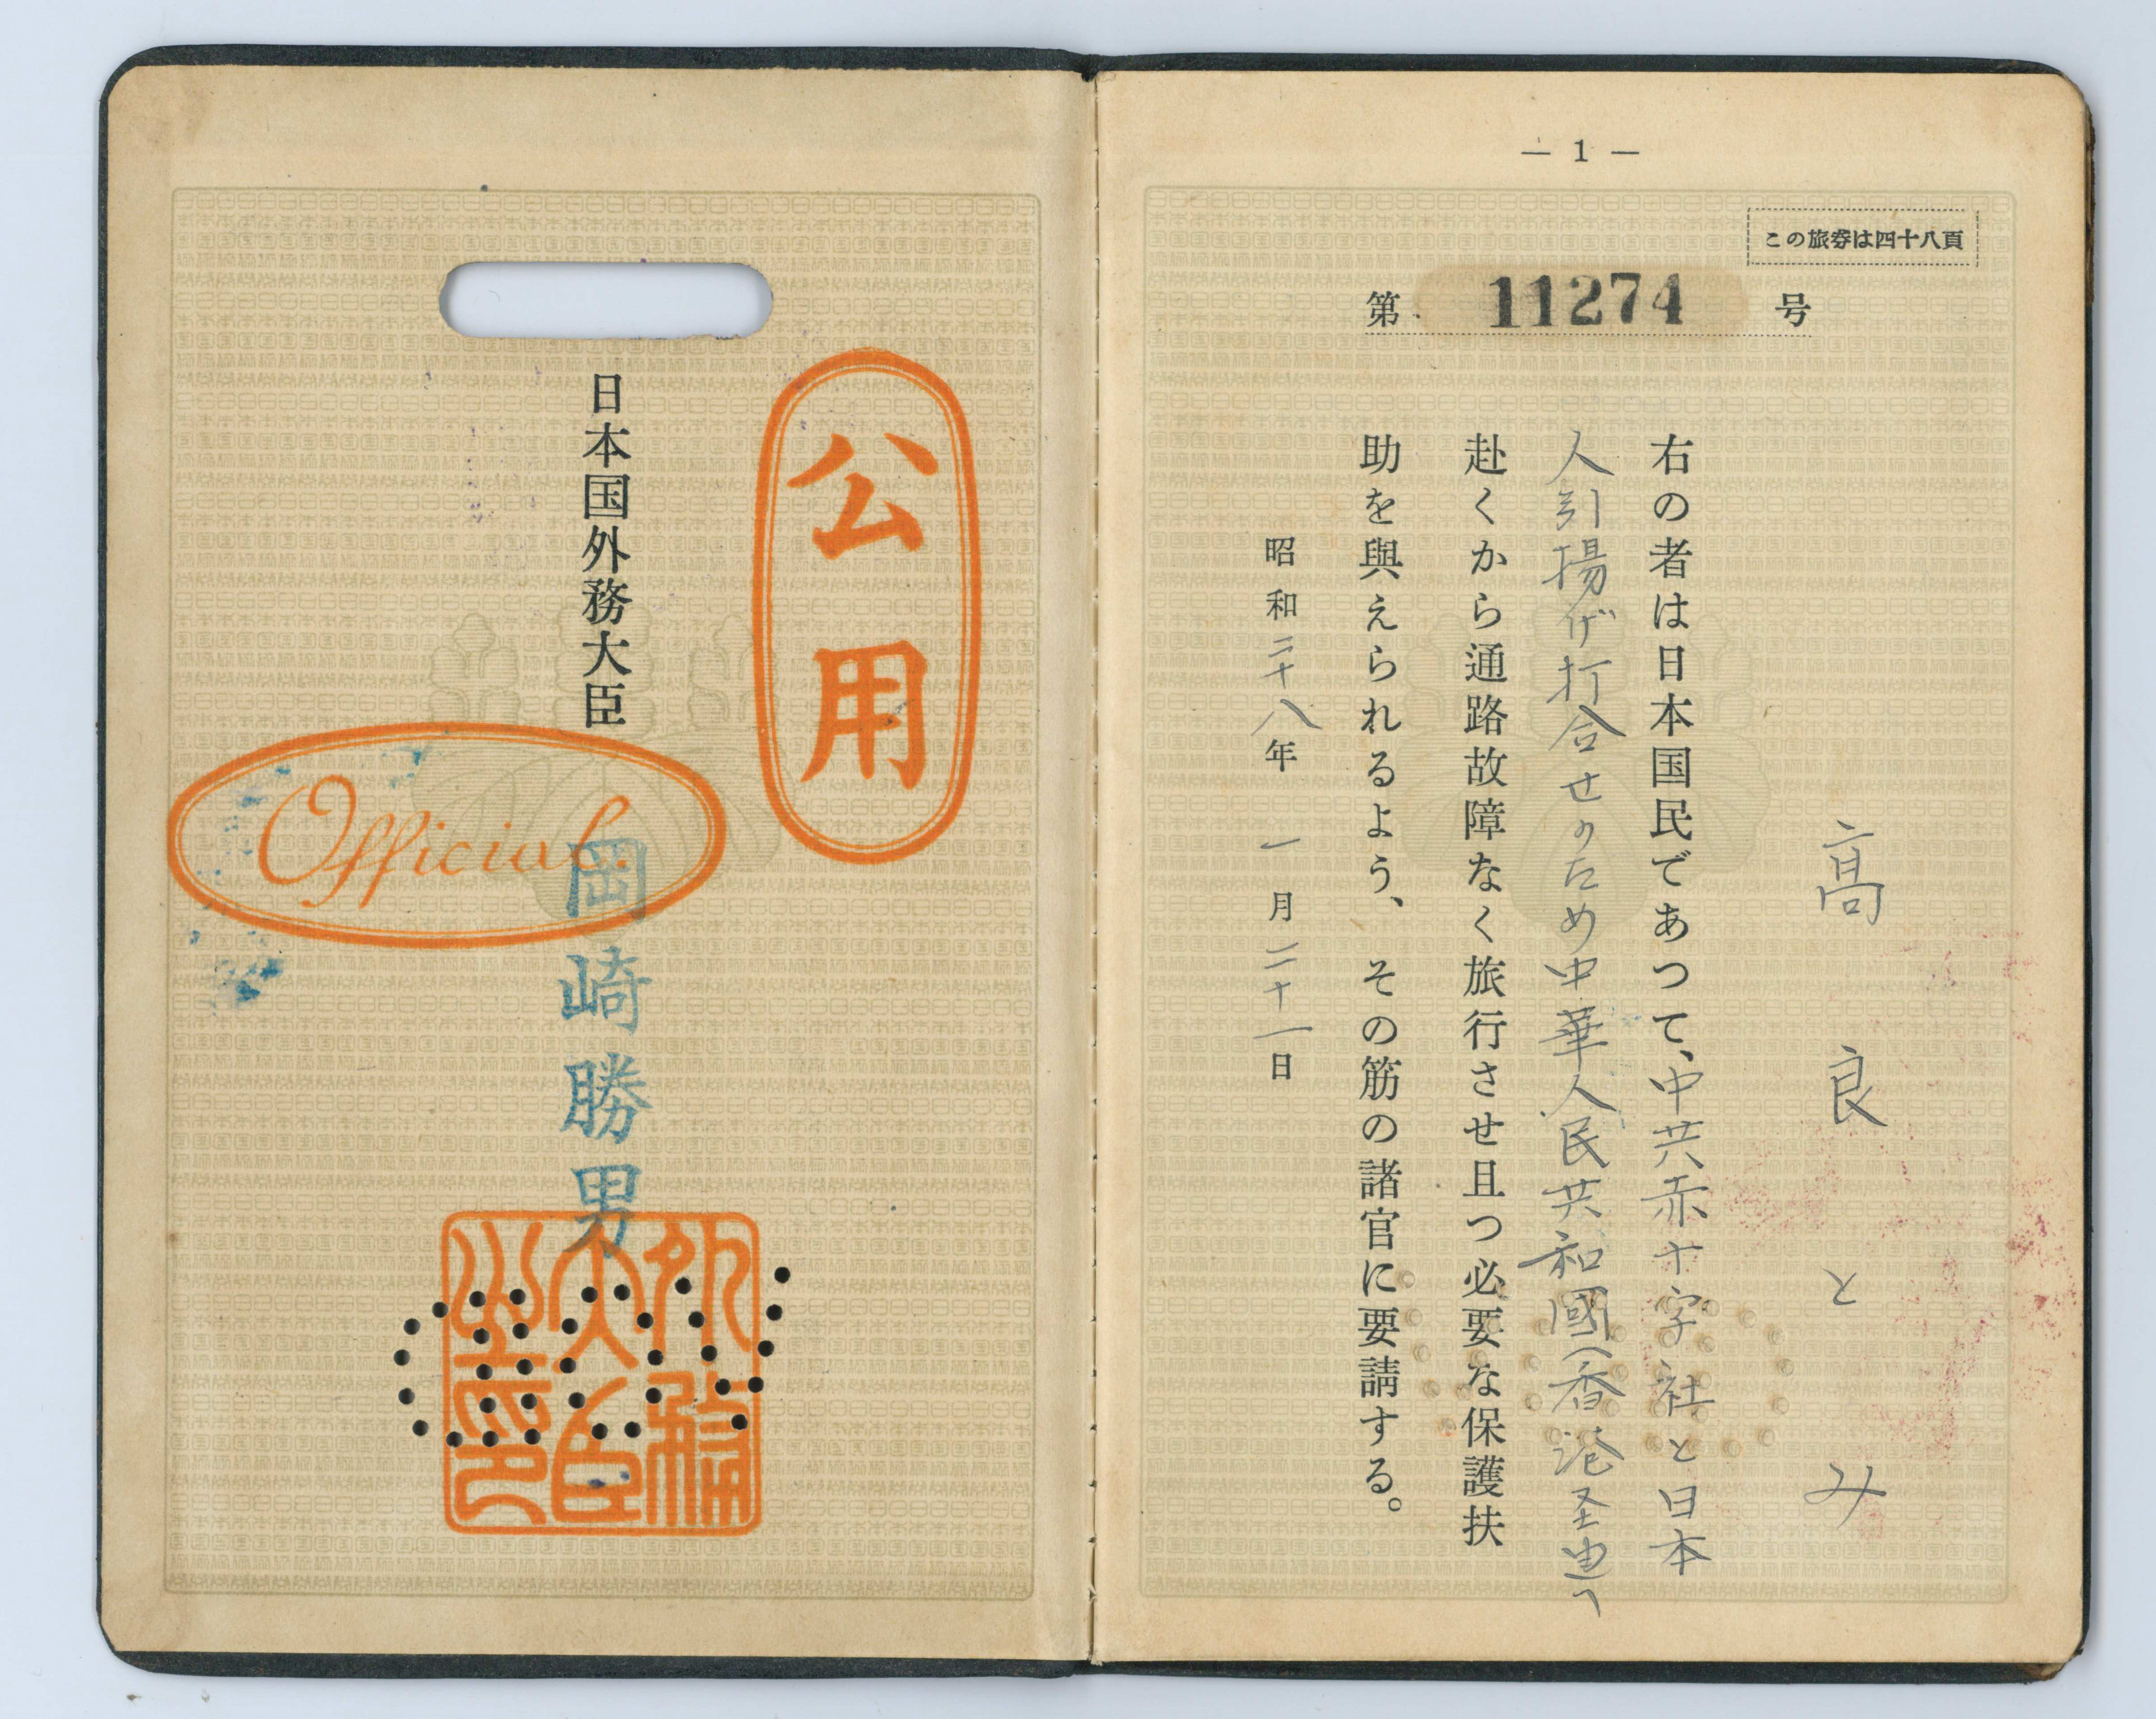 — 1 —
この旅券は四十八頁
第 11274 号
髙良とみ
右の者は日本国民であつて、中共赤十字社と日本
人引揚げ打合せのため中華人民共和國(香港経由)へ
赴くから通路故障なく旅行させ且つ必要な保護扶
助を與えられるよう、その筋の諸官に要請する。
昭和二十八年一月二十一日
公用
日本国外務大臣
岡崎勝男
Official.
外務
大臣
之印